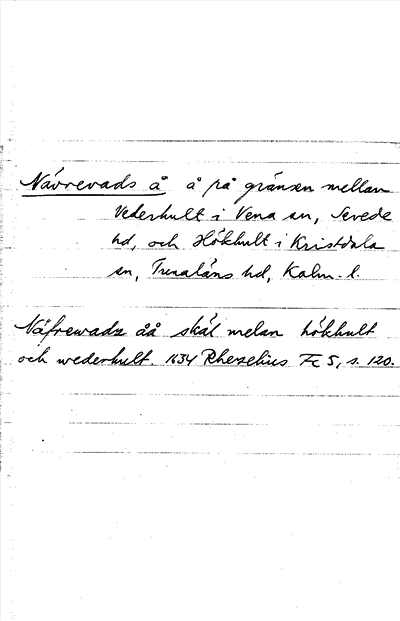 Nävrevads å å på gränsen mellan
Vederhult i Vena sn, Sevede
hd, och Hökhult i Kristdala
sn, Tunaläns hd, Kalm. l.
Näfrewadz åå skäl melan hökhult
och wederhult. 1634 Rhezelius Fc 5, s. 120.